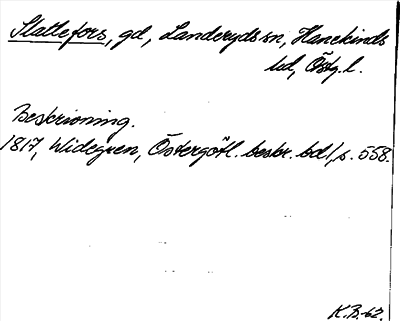 Slattefors, gd, Landeryds sn, Hanekinds
hd, Östg. l.
Beskrivning.
1817, Widegren, Östergötl. beskr. bd 1, s. 558.
K.B.-62.